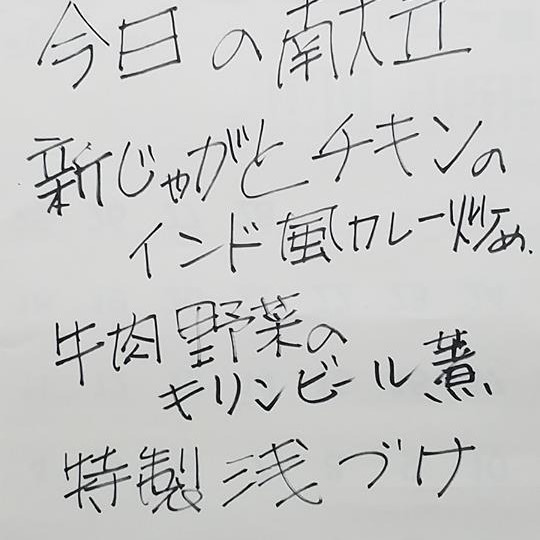 今日の献立
新じゃがとチキンの
インド風カレー炒め
牛肉野菜の
キリンビール煮
特製浅づけ